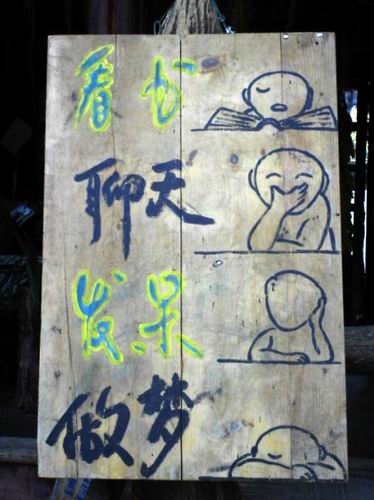 看书
聊天
发呆
做梦